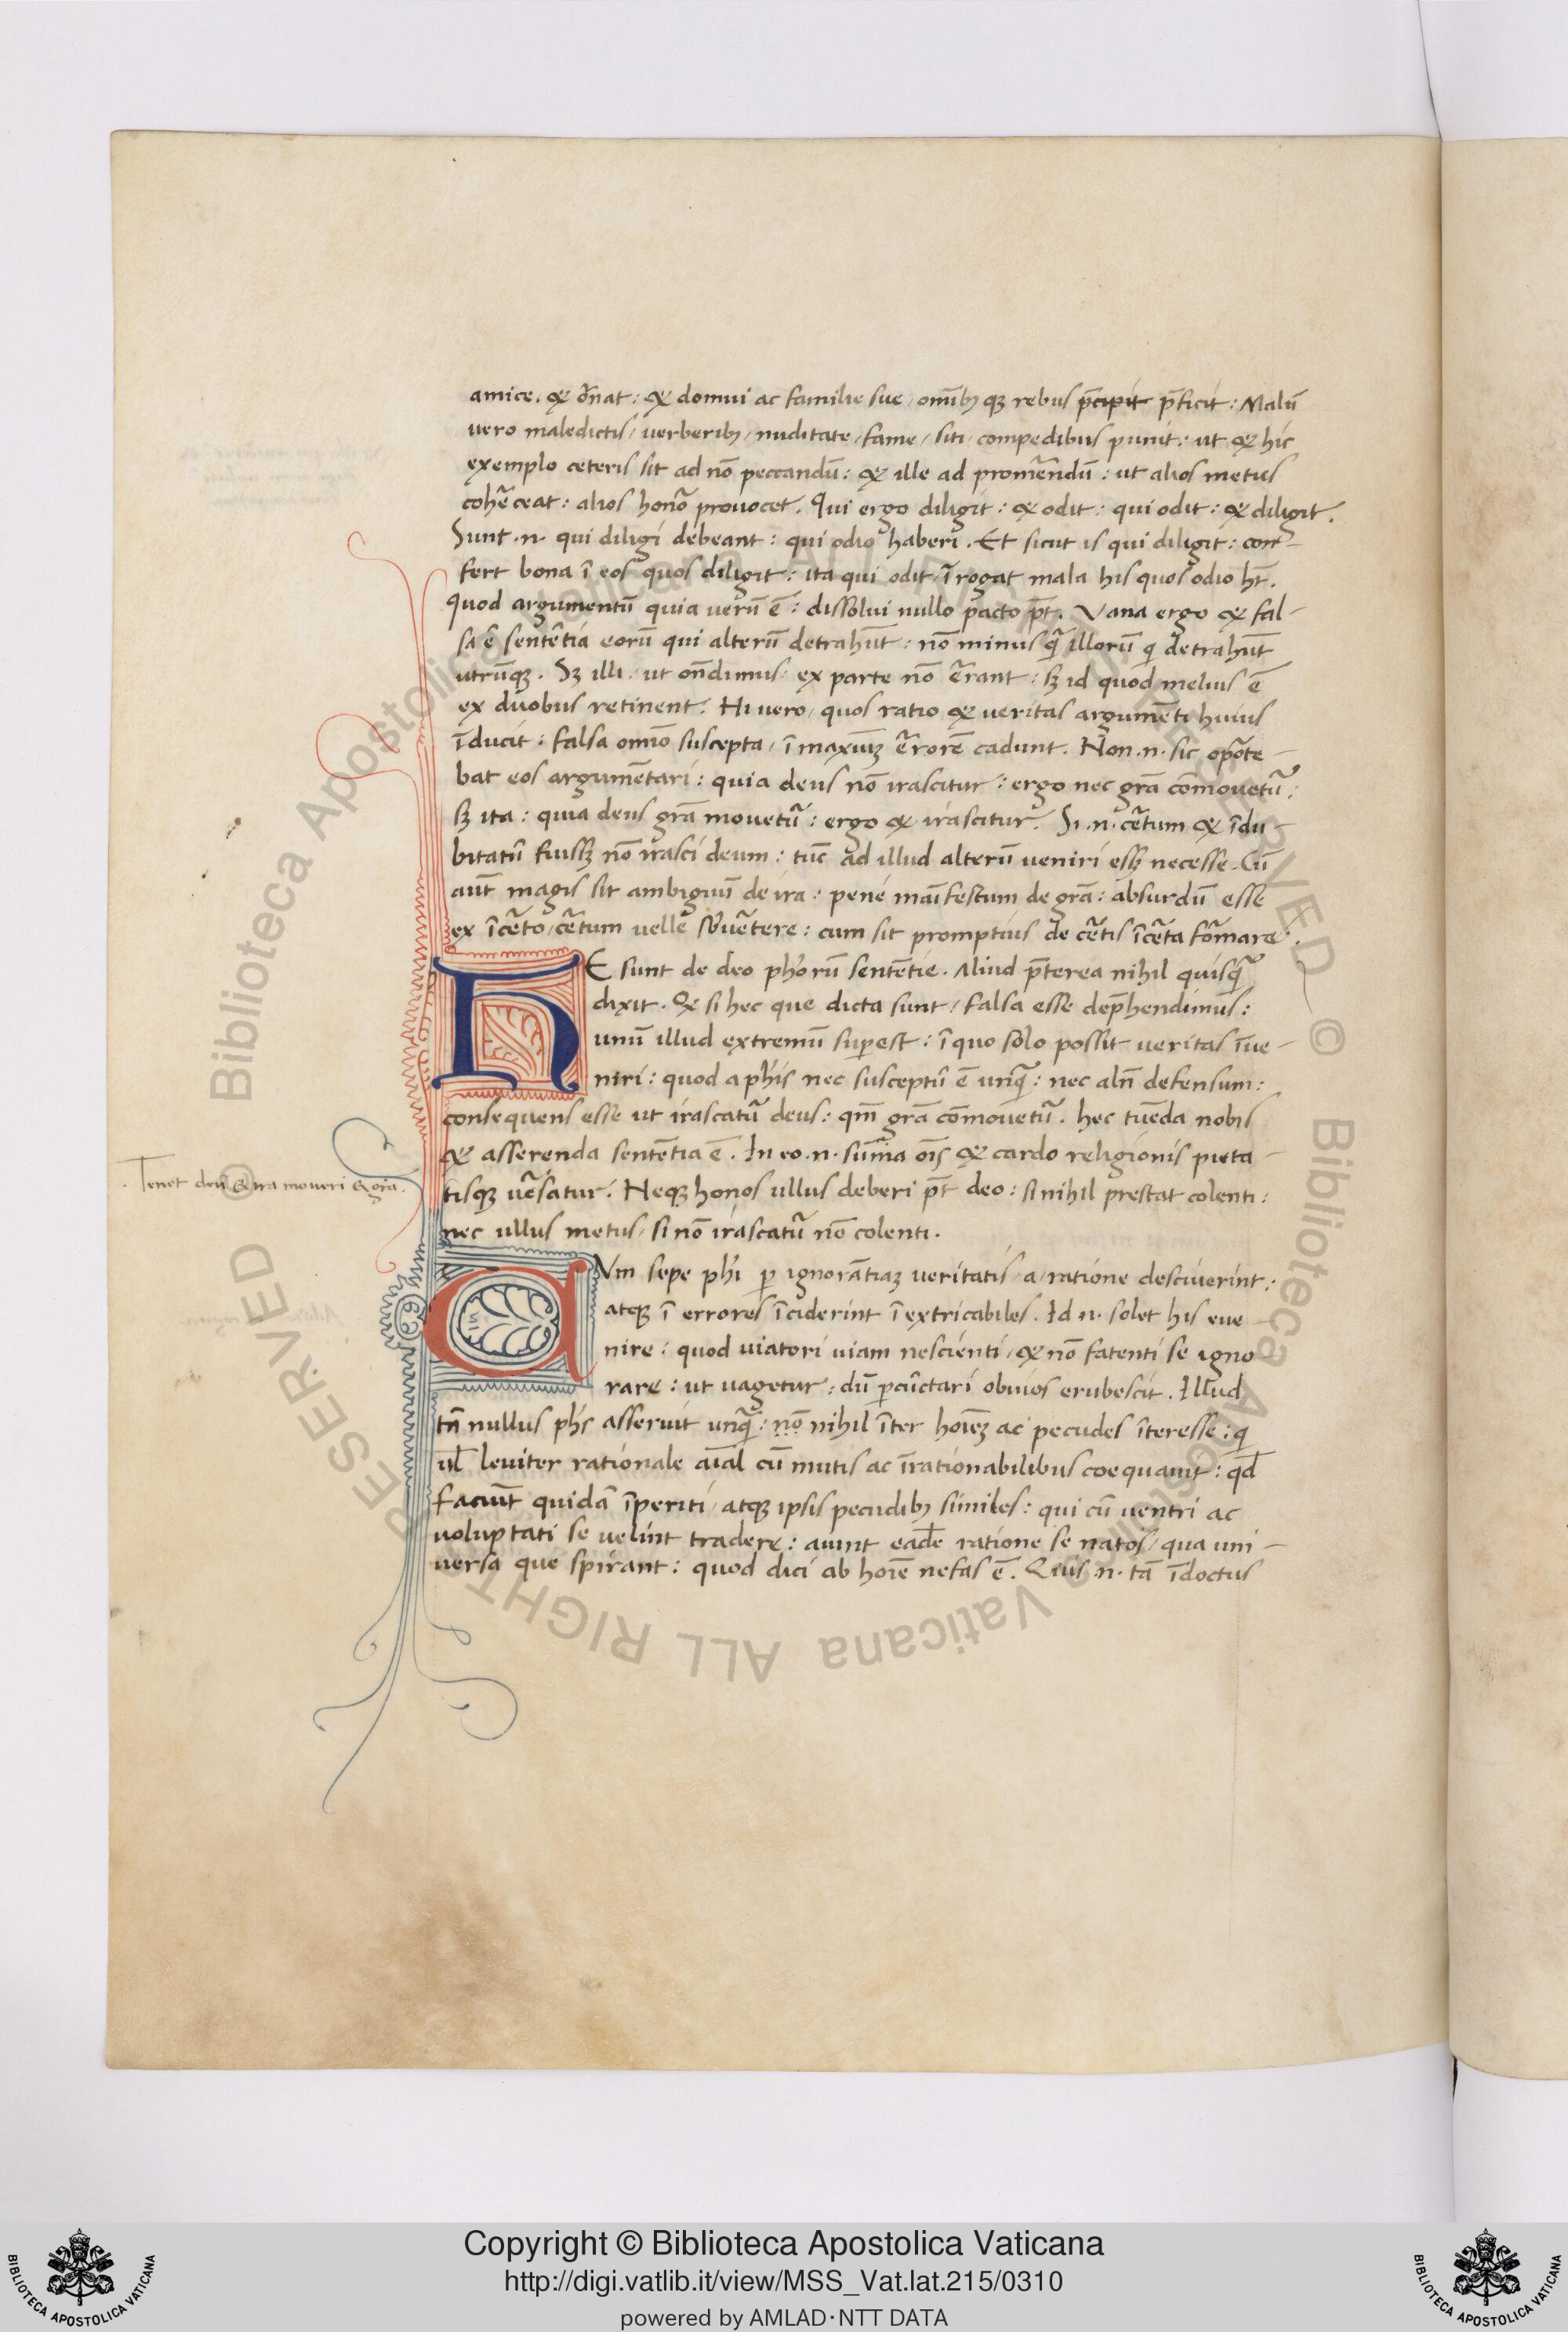 amice. & or̄nat: & domui ac familie sue, omībꝫ qꝫ rebus p̄cipit p̄ficit: Malū
vero maledictis, verberibꝫ, nuditate, fame, siti, compedibus punit: ut & hic
exemplo ceteris sit ad nō peccandū: & ille ad prom̄endū: ut alios metus
coh̄ceat: alios hono᷑ provocet. Qui ergo diligit: & odit: qui odit: & diligit.
Sunt .n. qui diligi debeant: qui odio haberi. Et sicut is qui diligit: con-
fert bona ī eos quos diligit: ita qui odit, īrogat mala his quos odio hr̄t.
Quod argumentū quia verū ē: dissolvi nullo pacto pt̄. Vana ergo & fal-
sa ē sentētia eorū qui alterū detrahūt: nō minus q̄ illorū qi detrahūt
utrūqꝫ. Sꝫ illi, ut on̄dimus: ex parte nō er̄rant: sꝫ id quod melius ē
ex duobus retinent. Hi vero, quos ratio & veritas argumēti huius
īducit: falsa omīo suscepta, ī maxiūꝫ er̄rorē cadunt. Non .n. sic opo᷑te-
bat eos argumētari: quia deus nō irascitur: ergo nec gr̄a cōmovetu᷑:
sꝫ ita: quia deus gr̄a movetu᷑: ergo & irascitur. Si .n. ce᷑tum & īdu-
bitatū fuissꝫ nō irasci deum: tūc ad illud alterū veniri essꝫ necesse. Cū
aūt magis sit ambiguū de ira: pene maīfestum de gr̄a: absurdū esse
ex īce᷑to, ce᷑tum velle sb̄ve᷑tere: cum sit promptius de ce᷑tis īce᷑ta fo᷑mare.
HE sunt de deo phorū sentētie. Aliud p̄terea nihil quisq̄
dixit. Q& si hec que dicta sunt, falsa esse dep̄hendimus:
unū illud extremū sup̱est: ī quo solo possit veritas īve-
niri: quod a phis nec susceptū ē unq̄: nec aln̄ defensum:
consequens esse ut irascatu᷑ deus: qm̄ gr̄a cōmovetu᷑. hec tuēda nobis
& asserenda sentētia ē. In eo .n. sum̄a oīs & cardo religionis pieta-
tisqꝫ ve᷑satur. Neqꝫ honos ullus deberi pt̄ deo: si nihil prestat colenti:
Tenet deū & ira moveri & gr̄a.
nec ullus metus, si nō irascatu᷑ nō colenti.
CVm sepe phi p̱ ignorātiaꝫ veritatis, a, ratione desciverint:
atqꝫ ī errores īciderint īextricabiles. Id .n. solet his eve-
nire: quod viatori viam nescienti, & nō fatenti se igno
rare: ut vagetur: dū p̱cūctari obvios erubescit. Illud
tn̄ nullus phs asseruit unq̄: nō nihil īter hoīeꝫ ac pecudes īteresse: qi
ul̄ leviter rationale aīal cū mutis ac īrationabilibus coequavit: qd̄
faciūt quidā īperiti, atqꝫ ipsis pecudibꝫ similes: qui cū ventri ac
voluptati se velint tradere: aiunt eadē ratione se natos, qua uni-
versa que spirant: quod dici ab hoīe nefas ē. Qius .n. tā īdoctus
Copyright © Biblioteca Apostolica Vaticana
http://digi.vatlib.it/view/MSS_Vat.lat.215/0310
powered by AMLAD·NTT DATA
BIBLIOTECA APOSTOLICA VATICANA
BIBLIOTECA APOSTOLICA VATICANA
© Biblioteca Apostolica Vaticana ALL RIGHTS RESERVED
© Biblioteca Apostolica Vaticana ALL RIGHTS RESERVED